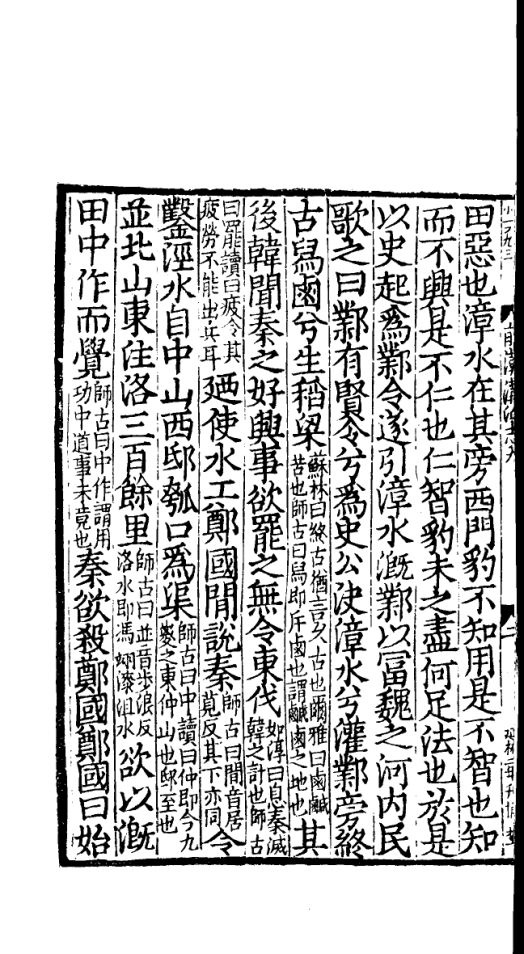 田惡也漳水在其旁西門豹不知用是不智也知
而不興是不仁也仁智豹未之盡何足法也於是
以史起爲鄴令遂引漳水溉鄴以富魏之河内民
歌之曰鄴有賢令兮爲史公決漳水兮灌鄴旁終
古舄鹵兮生稻梁蘇林曰終古猶言久古也爾雅曰鹵鹹苦也師古曰舄即斥鹵也謂鹹鹵之地也其
後韓聞秦之好興事欲罷之無令東伐如淳曰息秦滅韓之計也師古
曰罷讀曰疲令其疲勞不能出兵耳廼使水工鄭國閒說秦師古曰間音居莧反其下亦同令
鑿涇水自中山西邸瓠口爲渠師古曰中讀曰仲即今九嵏之東仲山也邸至也
並北山東注洛三百餘里師古曰並音步浪反洛水即馮翊漆沮水欲以溉
田中作而覺師古曰中作謂用功中道事未竟也秦欲殺鄭國鄭國曰始